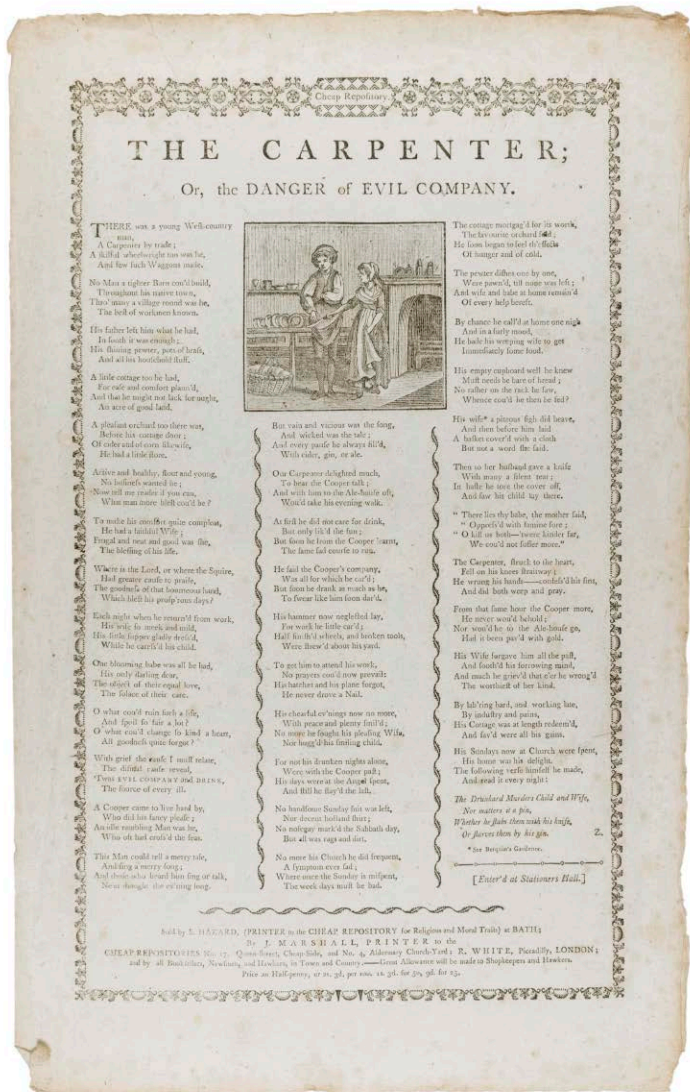 Cheap Repository.
THE CARPENTER;
Or, the DANGER of EVIL COMPANY.
THERE was a young West-country
man,
A Carpenter by trade;
A skilful wheelwright too was he,
And few such Waggons made.
No Man a tighter Barn cou'd build,
Throughout his native town,
Thro' many a village round was he,
The best of workmen known.
His father left him what he had,
In sooth it was enough;
His shining pewter, pots of brass,
And all his household stuff.
A little cottage too he had,
For ease and comfort plann'd,
And that he might not lack for ought,
An acre of good land.
A pleasant orchard too there was,
Before his cottage door;
Of cider and of corn likewise,
He had a little store.
Active and healthy, stout and young,
No business wanted he;
Now tell me reader if you can,
What man more blest cou'd be?
To make his comfort quite compleat,
He had a faithful Wife;
Frugal and neat and good was she,
The blessing of his life.
Where is the Lord, or where the Squire,
Had greater cause to praise,
The goodness of that bounteous hand,
Which blest his prosp'rous days?
Each night when he return'd from work,
His wife so meek and mild,
His little supper gladly dress'd,
While he caress'd his child.
One blooming babe was all he had,
His only darling dear,
The object of their equal love,
The solace of their care.
O what cou'd ruin such a life,
And spoil so fair a lot?
O what cou'd change so kind a heart,
All goodness quite forgot?
With grief the cause I must relate,
The dismal cause reveal,
'Twas EVIL COMPANY and DRINK,
The source of every ill.
A Cooper came to live hard by,
Who did his fancy please;
An idle rambling Man was he,
Who oft had cross'd the seas.
This Man could tell a merry tale,
And sing a merry song;
And those who heard him sing or talk,
Ne'er thought the ev'ning long.
But vain and vicious was the song,
And wicked was the tale;
And every pause he always fill'd,
With cider, gin, or ale.
Our Carpenter delighted much,
To hear the Cooper talk;
And with him to the Ale-house oft,
Wou'd take his evening walk.
At first he did not care for drink,
But only lik'd the fun;
But soon he from the Cooper learnt,
The same sad course to run.
He said the Cooper's company,
Was all for which he car'd;
But soon he drank as much as he,
To swear like him soon dar'd.
His hammer now neglected lay,
For work he little car'd;
Half finish'd wheels, and broken tools,
Were strew'd about his yard.
To get him to attend his work,
No prayers cou'd now prevail:
His hatchet and his plane forgot,
He never drove a Nail.
His chearful ev'nings now no more,
With peace and plenty smil'd;
No more he sought his pleasing Wife,
Nor hugg'd his smiling child.
For not his drunken nights alone,
Were with the Cooper past;
His days were at the Angel spent,
And still he stay'd the last.
No handsome Sunday suit was left,
Nor decent holland shirt;
No nosegay mark'd the Sabbath day,
But all was rags and dirt.
No more his Church he did frequent,
A symptom ever sad;
Where once the Sunday is mispent,
The week days must be bad.
The cottage mortgag'd for its worth,
The favourite orchard sold;
He soon began to feel th' effects
Of hunger and of cold.
The pewter dishes one by one,
Were pawn'd, till none was left;
And wife and babe at home remain'd
Of every help bereft.
By chance he call'd at home one night
And in a surly mood,
He bade his weeping wife to get
Immediately some food.
His empty cupboard well he knew
Must needs be bare of bread;
No rasher on the rack he saw,
Whence cou'd he then be fed?
His wife* a piteous sigh did heave,
And then before him laid
A basket cover'd with a cloth
But not a word she said.
Then to her husband gave a knife
With many a silent tear;
In haste he tore the cover off,
And saw his child lay there.
" There lies thy babe, the mother said,
" Oppress'd with famine sore;
" O kill us both—'twere kinder far,
We cou'd not suffer more."
The Carpenter, struck to the heart,
Fell on his knees straitway;
He wrung his hands——confess'd his sins,
And did both weep and pray.
From that same hour the Cooper more,
He never wou'd behold;
Nor wou'd he to the Ale-house go,
Had it been pav'd with gold.
His Wife forgave him all the past,
And sooth'd his sorrowing mind,
And much he griev'd that e'er he wrong'd
The worthiest of her kind.
By lab'ring hard, and working late,
By industry and pains,
His Cottage was at length redeem'd,
And sav'd were all his gains.
His Sundays now at Church were spent,
His home was his delight,
The following verse himself he made,
And read it every night:
The Drunkard Murders Child and Wife,
Nor matters it a pin,
Whether he stabs them with his knife,
Or starves them by his gin.
Z.
* See Berquin's Gardener.
[Enter'd at Stationers Hall.]
Sold by S. HAZARD, (PRINTER to the CHEAP REPOSITORY for Religious and Moral Tracts) at BATH;
By J. MARSHALL, PRINTER to the
CHEAP REPOSITORIES No. 17, Queen-Street, Cheap-Side, and No. 4, Aldermary Church-Yard; R. WHITE, Piccadilly, LONDON;
and by all Booksellers, Newsmen, and Hawkers, in Town and Country.——Great Allowance will be made to Shopkeepers and Hawkers.
Price an Half-penny, or 2s. 3d. per 100. 1s. 3d. for 50, 9d. for 25.